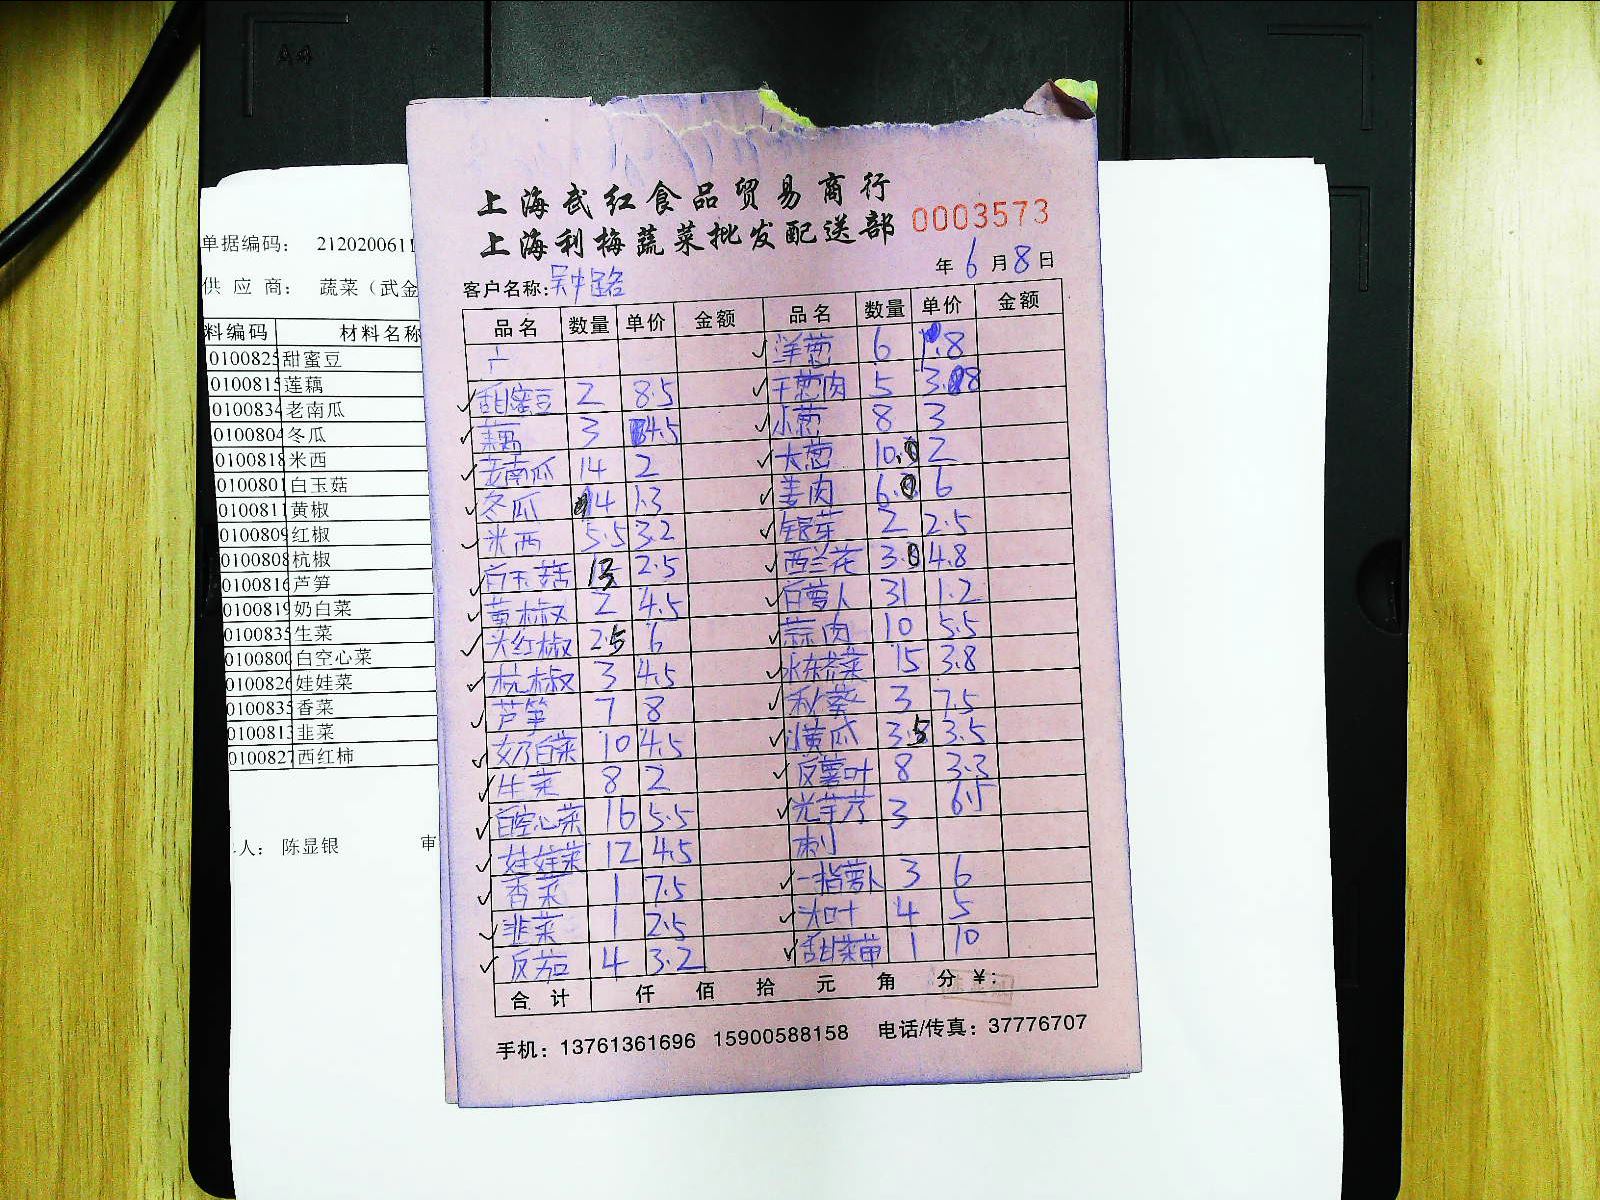 单据编码： 2120200611
供 应 商： 蔬菜（武金
料编码 材料名称
0100825 甜蜜豆
0100815 莲藕
0100834 老南瓜
0100804 冬瓜
0100818 米西
0100801 白玉菇
0100811 黄椒
0100809 红椒
0100808 杭椒
0100816 芦笋
0100819 奶白菜
0100835 生菜
0100800 白空心菜
0100826 娃娃菜
0100835 香菜
0100813 韭菜
0100827 西红柿
人： 陈显银 审
上海武红食品贸易商行
上海利梅蔬菜批发配送部
0003573
年 6 月 8 日
客户名称: 吴中路
品名 数量 单价 金额 品名 数量 单价 金额
洋葱 6 1.8
甜蜜豆 2 8.5 干葱肉 5 3.8
藕 3 4.5 小葱 8 3
老南瓜 14 2 大葱 10. 2
冬瓜 14 1.3 姜肉 6. 6
米西 5.5 3.2 银芽 2 2.5
白玉菇 13 2.5 西兰花 3. 4.8
黄椒 2 4.5 白萝卜 31 1.2
尖红椒 2.5 6 蒜肉 10 5.5
杭椒 3 4.5 水东芥菜 15 3.8
芦笋 7 8 秋葵 3 7.5
奶白菜 10 4.5 黄瓜 3.5 3.5
生菜 8 2 反薯叶 8 3.3
白空心菜 16 5.5 光芋艿 3 6.5
娃娃菜 12 4.5 刺
香菜 1 7.5 一指萝卜 3 6
韭菜 1 2.5 大叶 4 5
反茄 4 3.2 甜菜苗 1 10
合 计 仟 佰 拾 元 角 分 ¥:
手机：13761361696 15900588158 电话/传真：37776707